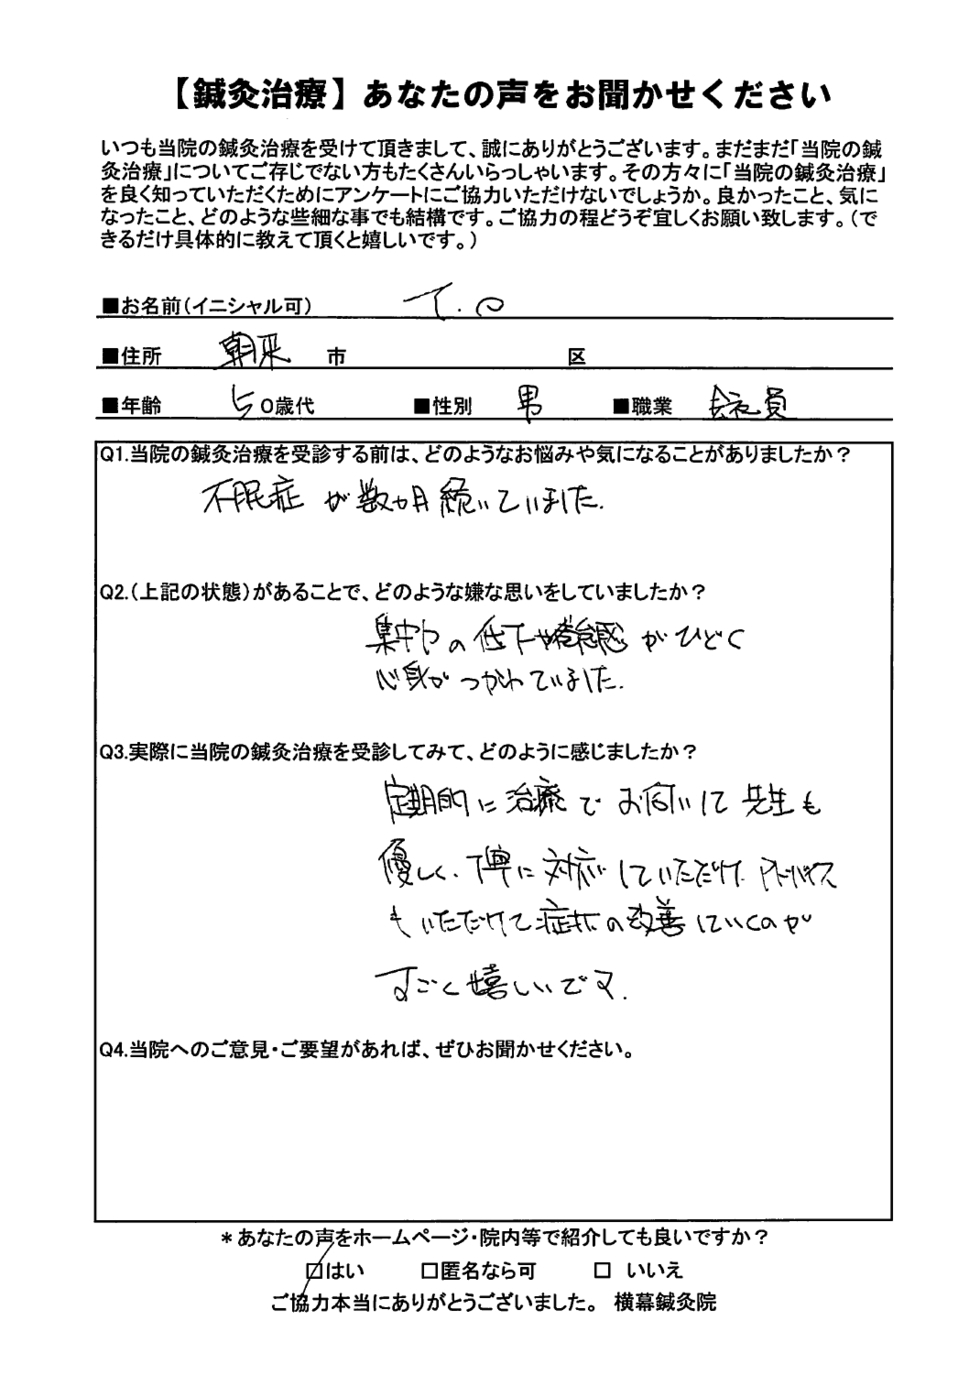 【鍼灸治療】あなたの声をお聞かせください
いつも当院の鍼灸治療を受けて頂きまして、誠にありがとうございます。まだまだ「当院の鍼
灸治療」についてご存じでない方もたくさんいらっしゃいます。その方々に「当院の鍼灸治療」
を良く知っていただくためにアンケートにご協力いただけないでしょうか。良かったこと、気に
なったこと、どのような些細な事でも結構です。ご協力の程どうぞ宜しくお願い致します。（で
きるだけ具体的に教えて頂くと嬉しいです。）
■お名前（イニシャル可） T.O
■住所 朝来 市 区
■年齢 50歳代 ■性別 男 ■職業 会社員
Q1.当院の鍼灸治療を受診する前は、どのようなお悩みや気になることがありましたか？
不眠症が数ヶ月続いていました.
Q2.（上記の状態）があることで、どのような嫌な思いをしていましたか？
集中力の低下や倦怠感がひどく
心身がつかれていました.
Q3.実際に当院の鍼灸治療を受診してみて、どのように感じましたか？
定期的に治療でお伺いして先生も
優しく、丁寧に対応していただけ、アドバイス
もいただけて症状の改善していくのが
すごく嬉しいです.
Q4.当院へのご意見・ご要望があれば、ぜひお聞かせください。
＊あなたの声をホームページ・院内等で紹介しても良いですか？
□はい □匿名なら可 □ いいえ
ご協力本当にありがとうございました。 横幕鍼灸院